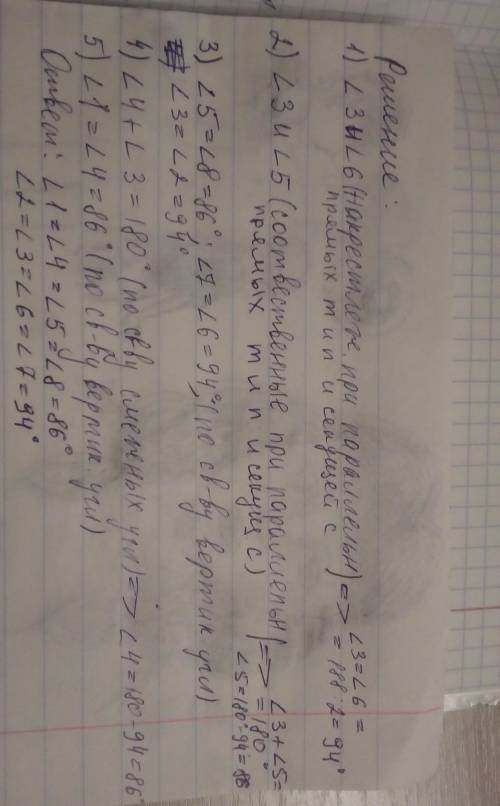 Решение:
1) ∠3 и ∠6 (накрестлеж. при параллельн
прямых m и n и секущей c) => ∠3=∠6=
=188:2=94°
2) ∠3 и ∠5 (соотвественные при параллельн
прямых m и n и секущ c) => ∠3+∠5=
=180°
∠5=180°-94=86
3) ∠5=∠8=86°; ∠7=∠6=94° (по св-ву вертик угл)
∠3=∠2=94°
4) ∠4+∠3=180° (по св-ву смежных угл) => ∠4=180-94=86°
5) ∠1=∠4=86° (по св-ву вертик. угл)
Ответ: ∠1=∠4=∠5=∠8=86°
∠2=∠3=∠6=∠7=94°